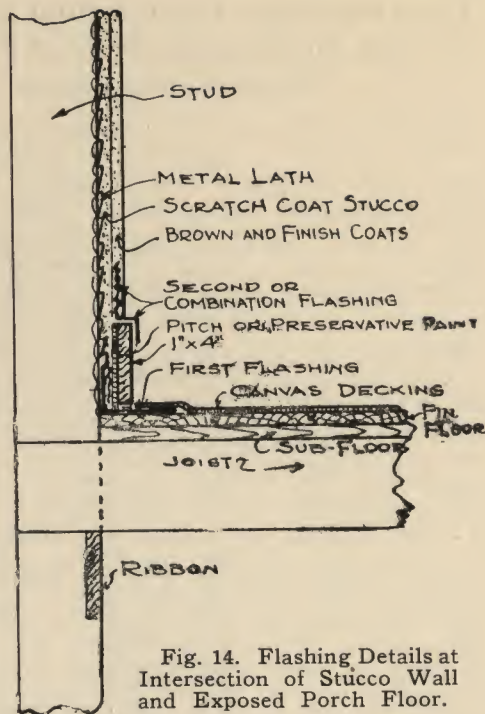 STUD
METAL LATH
SCRATCH COAT STUCCO
BROWN AND FINISH COATS
SECOND OR
COMBINATION FLASHING
PITCH OR PRESERVATIVE PAINT
1"x4"
FIRST FLASHING
CANVAS DECKING
FIN.
FLOOR
SUB-FLOOR
JOIST
RIBBON
Fig. 14. Flashing Details at
Intersection of Stucco Wall
and Exposed Porch Floor.